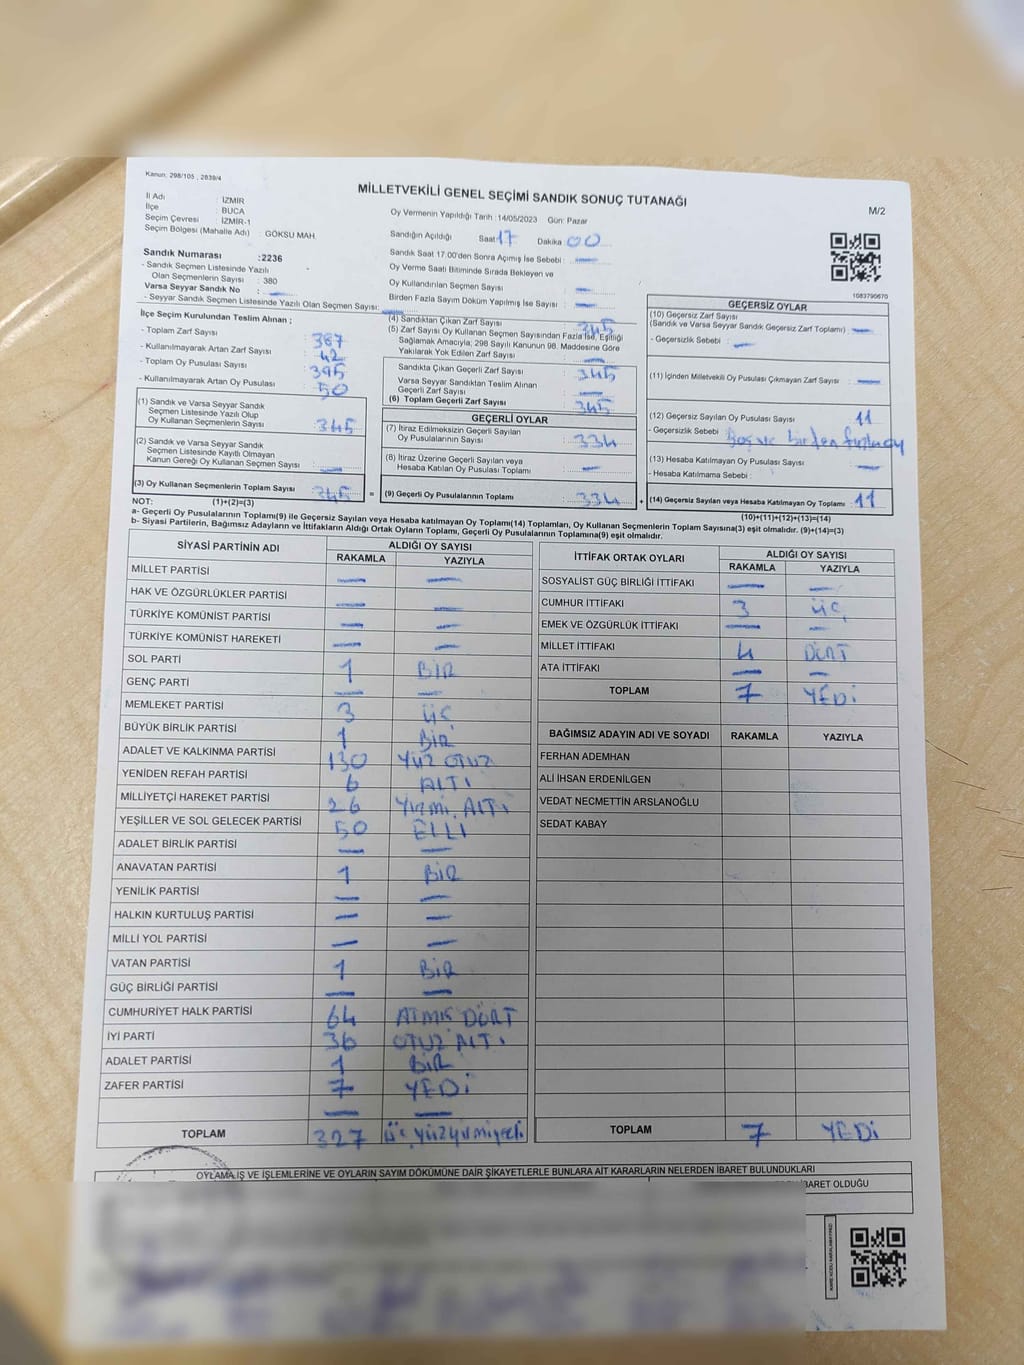 Kanun, 298/105 , 2839/4
MİLLETVEKİLİ GENEL SEÇİMİ SANDIK SONUÇ TUTANAĞI
M/2
İl Adı : İZMİR
İlçe : BUCA
Seçim Çevresi : İZMİR-1
Seçim Bölgesi (Mahalle Adı) : GÖKSU MAH.
Oy Vermenin Yapıldığı Tarih :14/05/2023 Gün: Pazar
Sandığın Açıldığı Saat 17 Dakika 00
Sandık Numarası :2236
- Sandık Seçmen Listesinde Yazılı
Olan Seçmenlerin Sayısı : 380
Varsa Seyyar Sandık No : —
- Seyyar Sandık Seçmen Listesinde Yazılı Olan Seçmen Sayısı: —
Sandık Saat 17.00'den Sonra Açılmış İse Sebebi : —
Oy Verme Saati Bitiminde Sırada Bekleyen ve
Oy Kullandırılan Seçmen Sayısı : —
Birden Fazla Sayım Döküm Yapılmış İse Sayısı : —
1083790670
İlçe Seçim Kurulundan Teslim Alınan ;
- Toplam Zarf Sayısı : 387
- Kullanılmayarak Artan Zarf Sayısı : 42
- Toplam Oy Pusulası Sayısı : 395
- Kullanılmayarak Artan Oy Pusulası : 50
(1) Sandık ve Varsa Seyyar Sandık
Seçmen Listesinde Yazılı Olup
Oy Kullanan Seçmenlerin Sayısı : 345
(2) Sandık ve Varsa Seyyar Sandık
Seçmen Listesinde Kayıtlı Olmayan
Kanun Gereği Oy Kullanan Seçmen Sayısı : —
(3) Oy Kullanan Seçmenlerin Toplam Sayısı : 345
(4) Sandıktan Çıkan Zarf Sayısı : 345
(5) Zarf Sayısı Oy Kullanan Seçmen Sayısından Fazla İse, Eşitliği
Sağlamak Amacıyla; 298 Sayılı Kanunun 98. Maddesine Göre
Yakılarak Yok Edilen Zarf Sayısı : —
Sandıkta Çıkan Geçerli Zarf Sayısı : 345
Varsa Seyyar Sandıktan Teslim Alınan
Geçerli Zarf Sayısı : —
(6) Toplam Geçerli Zarf Sayısı : 345
GEÇERLİ OYLAR
(7) İtiraz Edilmeksizin Geçerli Sayılan
Oy Pusulalarının Sayısı : 334
(8) İtiraz Üzerine Geçerli Sayılan veya
Hesaba Katılan Oy Pusulası Toplamı : —
= (9) Geçerli Oy Pusulalarının Toplamı : 334
GEÇERSİZ OYLAR
(10) Geçersiz Zarf Sayısı
(Sandık ve Varsa Seyyar Sandık Geçersiz Zarf Toplamı) : —
- Geçersizlik Sebebi : —
(11) İçinden Milletvekili Oy Pusulası Çıkmayan Zarf Sayısı : —
(12) Geçersiz Sayılan Oy Pusulası Sayısı : 11
- Geçersizlik Sebebi : Boş ve birden fazla oy
(13) Hesaba Katılmayan Oy Pusulası Sayısı : —
- Hesaba Katılmama Sebebi :
+ (14) Geçersiz Sayılan veya Hesaba Katılmayan Oy Toplamı : 11
NOT: (1)+(2)=(3)
(10)+(11)+(12)+(13)=(14)
a- Geçerli Oy Pusulalarının Toplamı(9) ile Geçersiz Sayılan veya Hesaba katılmayan Oy Toplamı(14) Toplamları, Oy Kullanan Seçmenlerin Toplam Sayısına(3) eşit olmalıdır. (9)+(14)=(3)
b- Siyasi Partilerin, Bağımsız Adayların ve İttifakların Aldığı Oyların Toplamı, Geçerli Oy Pusulalarının Toplamına(9) eşit olmalıdır.
SİYASİ PARTİNİN ADI ALDIĞI OY SAYISI
RAKAMLA YAZIYLA
MİLLET PARTİSİ — —
HAK VE ÖZGÜRLÜKLER PARTİSİ — —
TÜRKİYE KOMÜNİST PARTİSİ — —
TÜRKİYE KOMÜNİST HAREKETİ — —
SOL PARTİ 1 BİR
GENÇ PARTİ — —
MEMLEKET PARTİSİ 3 ÜÇ
BÜYÜK BİRLİK PARTİSİ 1 BİR
ADALET VE KALKINMA PARTİSİ 130 YÜZ OTUZ
YENİDEN REFAH PARTİSİ 6 ALTI
MİLLİYETÇİ HAREKET PARTİSİ 26 YİRMİ ALTI
YEŞİLLER VE SOL GELECEK PARTİSİ 50 ELLİ
ADALET BİRLİK PARTİSİ — —
ANAVATAN PARTİSİ 1 BİR
YENİLİK PARTİSİ — —
HALKIN KURTULUŞ PARTİSİ — —
MİLLİ YOL PARTİSİ — —
VATAN PARTİSİ 1 BİR
GÜÇ BİRLİĞİ PARTİSİ — —
CUMHURİYET HALK PARTİSİ 64 ATMIŞ DÖRT
İYİ PARTİ 36 OTUZ ALTI
ADALET PARTİSİ 1 BİR
ZAFER PARTİSİ 7 YEDİ
— —
TOPLAM 327 üç yüzyirmiyedi
İTTİFAK ORTAK OYLARI ALDIĞI OY SAYISI
RAKAMLA YAZIYLA
SOSYALİST GÜÇ BİRLİĞİ İTTİFAKI — —
CUMHUR İTTİFAKI 3 ÜÇ
EMEK VE ÖZGÜRLÜK İTTİFAKI — —
MİLLET İTTİFAKI 4 DÖRT
ATA İTTİFAKI — —
TOPLAM 7 YEDİ
BAĞIMSIZ ADAYIN ADI VE SOYADI RAKAMLA YAZIYLA
FERHAN ADEMHAN
ALİ İHSAN ERDENİLGEN
VEDAT NECMETTİN ARSLANOĞLU
SEDAT KABAY
TOPLAM 7 YEDİ
OYLAMA İŞ VE İŞLEMLERİNE VE OYLARIN SAYIM DÖKÜMÜNE DAİR ŞİKAYETLERLE BUNLARA AİT KARARLARIN NELERDEN İBARET BULUNDUKLARI
İBARET OLDUĞU